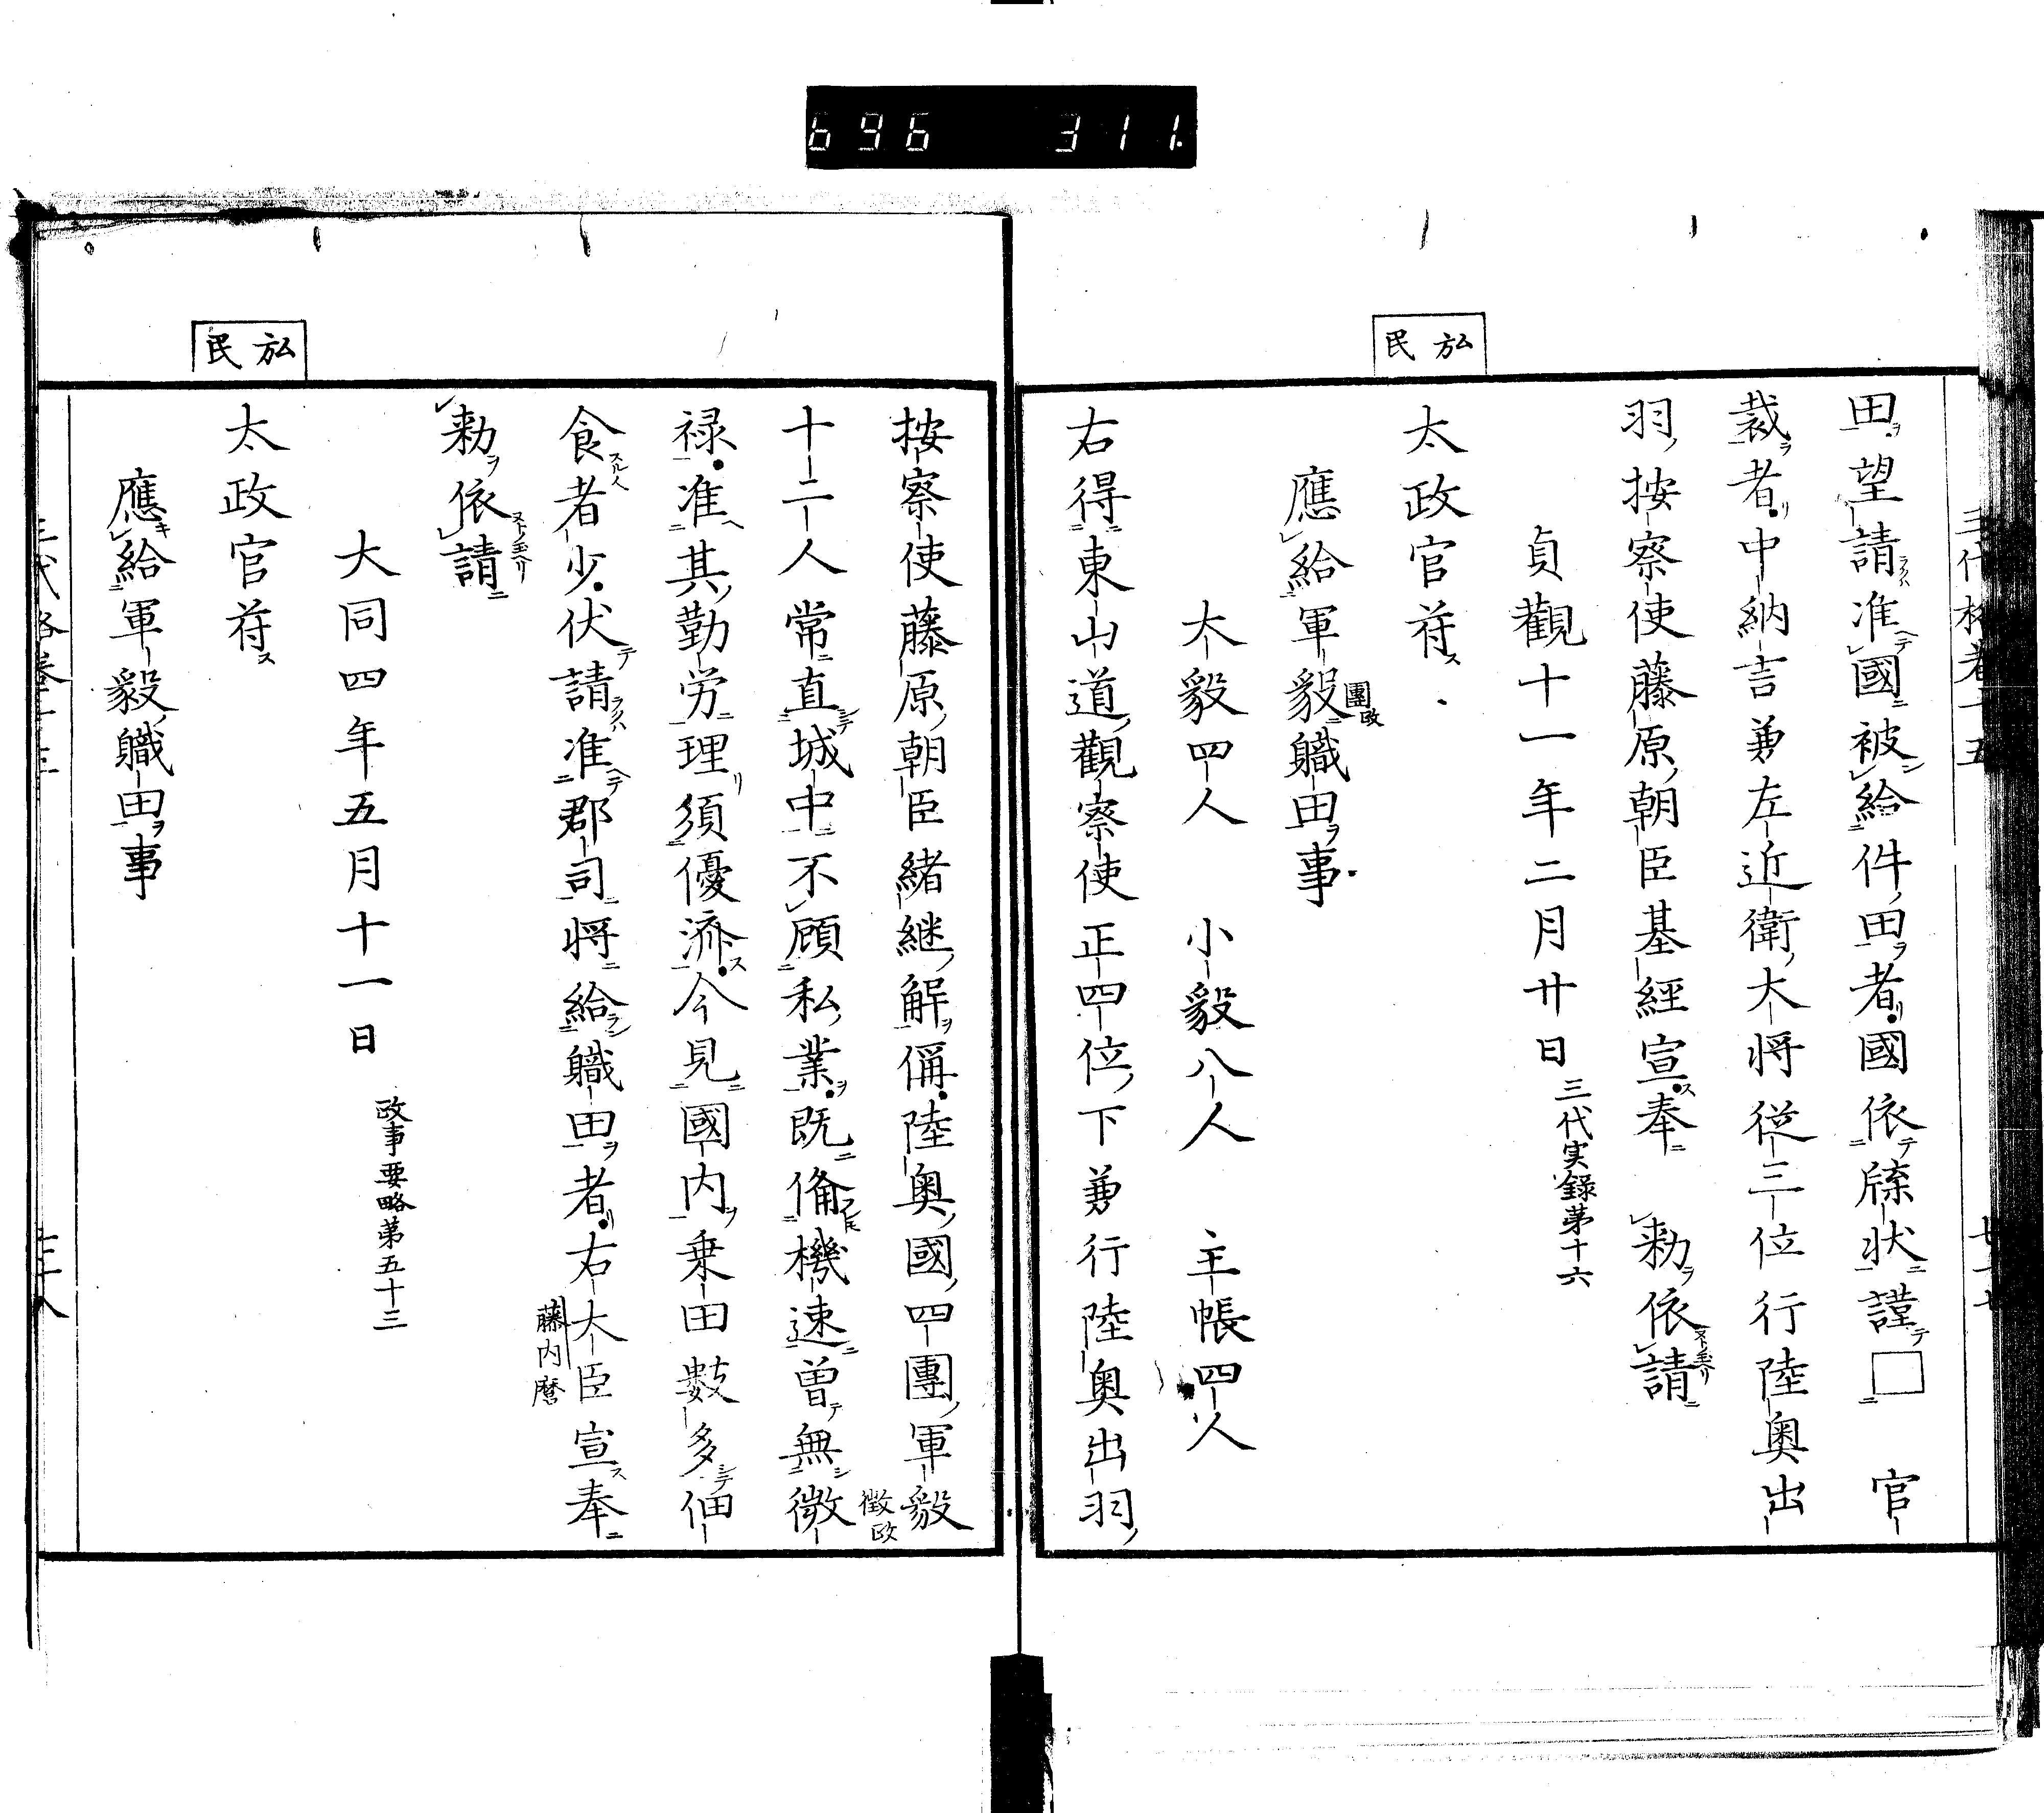 696 311
弘民
田望請准國被給件田者國依牒状謹□ 官
裁者中納言兼左近衛大将従三位行陸奥出
羽按察使藤原朝臣基經宣奉 勅依請
貞觀十一年二月廿日 三代実録第十六
太政官符
應給軍毅職田事
團政
大毅四人 小毅八人 主帳四人
右得東山道觀察使正四位下兼行陸奥出羽
按察使藤原朝臣緒継解偁陸奥國四團軍毅
十二人常直城中不顧私業既俻機速曽無微
徴政
禄准其勤労理須優済今見國内乗田數多佃
食者少伏請准郡司将給職田者右大臣宣奉
藤内麿
勅依請
大同四年五月十一日 政事要略第五十三
弘民
太政官符
應給軍毅職田事